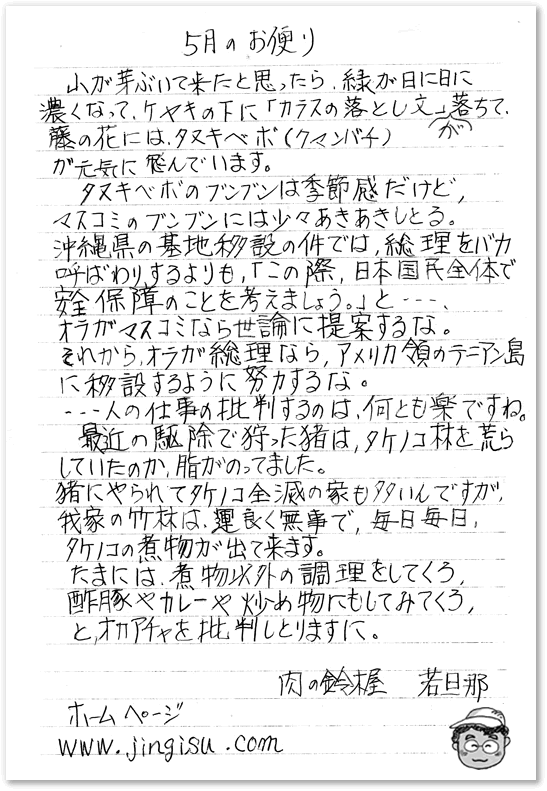 5月のお便り
山が芽ぶいて来たと思ったら、緑が日に日に
濃くなって、ケヤキの下に「カラスの落とし文」が落ちて、
藤の花には、タヌキベボ(クマンバチ)
が元気に飛んでいます。
タヌキベボのブンブンは季節感だけど、
マスコミのブンブンには少々あきあきしとる。
沖縄県の基地移設の件では、総理をバカ
呼ばわりするよりも、「この際、日本国民全体で
安全保障のことを考えましょう。」と・・・、
オラガマスコミなら世論に提案するな。
それから、オラガ総理なら、アメリカ領のテニアン島
に移設するように努力するな。
・・・人の仕事の批判するのは、何とも楽ですね。
最近の駆除で狩った猪は、タケノコ林を荒ら
していたのか、脂がのってました。
猪にやられてタケノコ全滅の家も多いんですが、
我家の竹林は、運良く無事で、毎日毎日、
タケノコの煮物が出て来ます。
たまには、煮物以外の調理をしてくろ、
酢豚やカレーや炒め物にもしてみてくろ、
と、オカアチャを批判しとりますに。
肉の鈴木屋 若旦那
ホームページ
www.jingisu.com